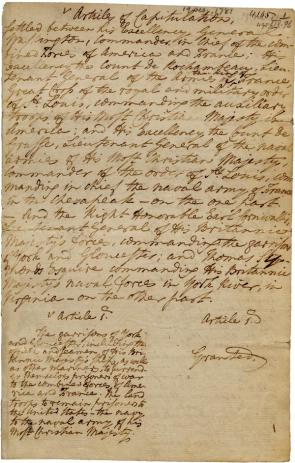 Articles of Capitulation,
settled between his excellency General
Washington, commander in Chief of the com-
bined Force of America and France; His
Excellency the Count de Rochambeau, Lieu-
tenant General of the Armies of the King of France
Great Cross of the royal and military order
of St Louis, commanding the auxiliary
Troops of His Most Christian Majesty in
America; and His Excellency the Count de
Grasse, Lieutenant General of the naval
Armies of His Most Christian Majesty
commander of the order of St Louis, com-
manding in chief the naval army of France
in the Chesapeak - on the one part
- And the Right Honorable Earl Cornwallis,
Lieutenant General of His Britannic
Majesty's Force, commanding the garrisons
of York and Gloucester; and Thomas Sy-
monds Esquire commanding His Britannic
Majesty's naval Force in York river, in
Virginia - on the other part.
Article 1st.
The garrisons of York
and Gloucester, including the
officers and seamen of His Bri-
tannic Majesty's ships, as well
as other mariners, to surrend-
er themselves prisoners of war
to the combined forces of Ame-
rica and France. The land
troops to remain prisoners to
the United States - the navy
to the naval army of His
Most Christian Majesty
Article 1st
Granted.